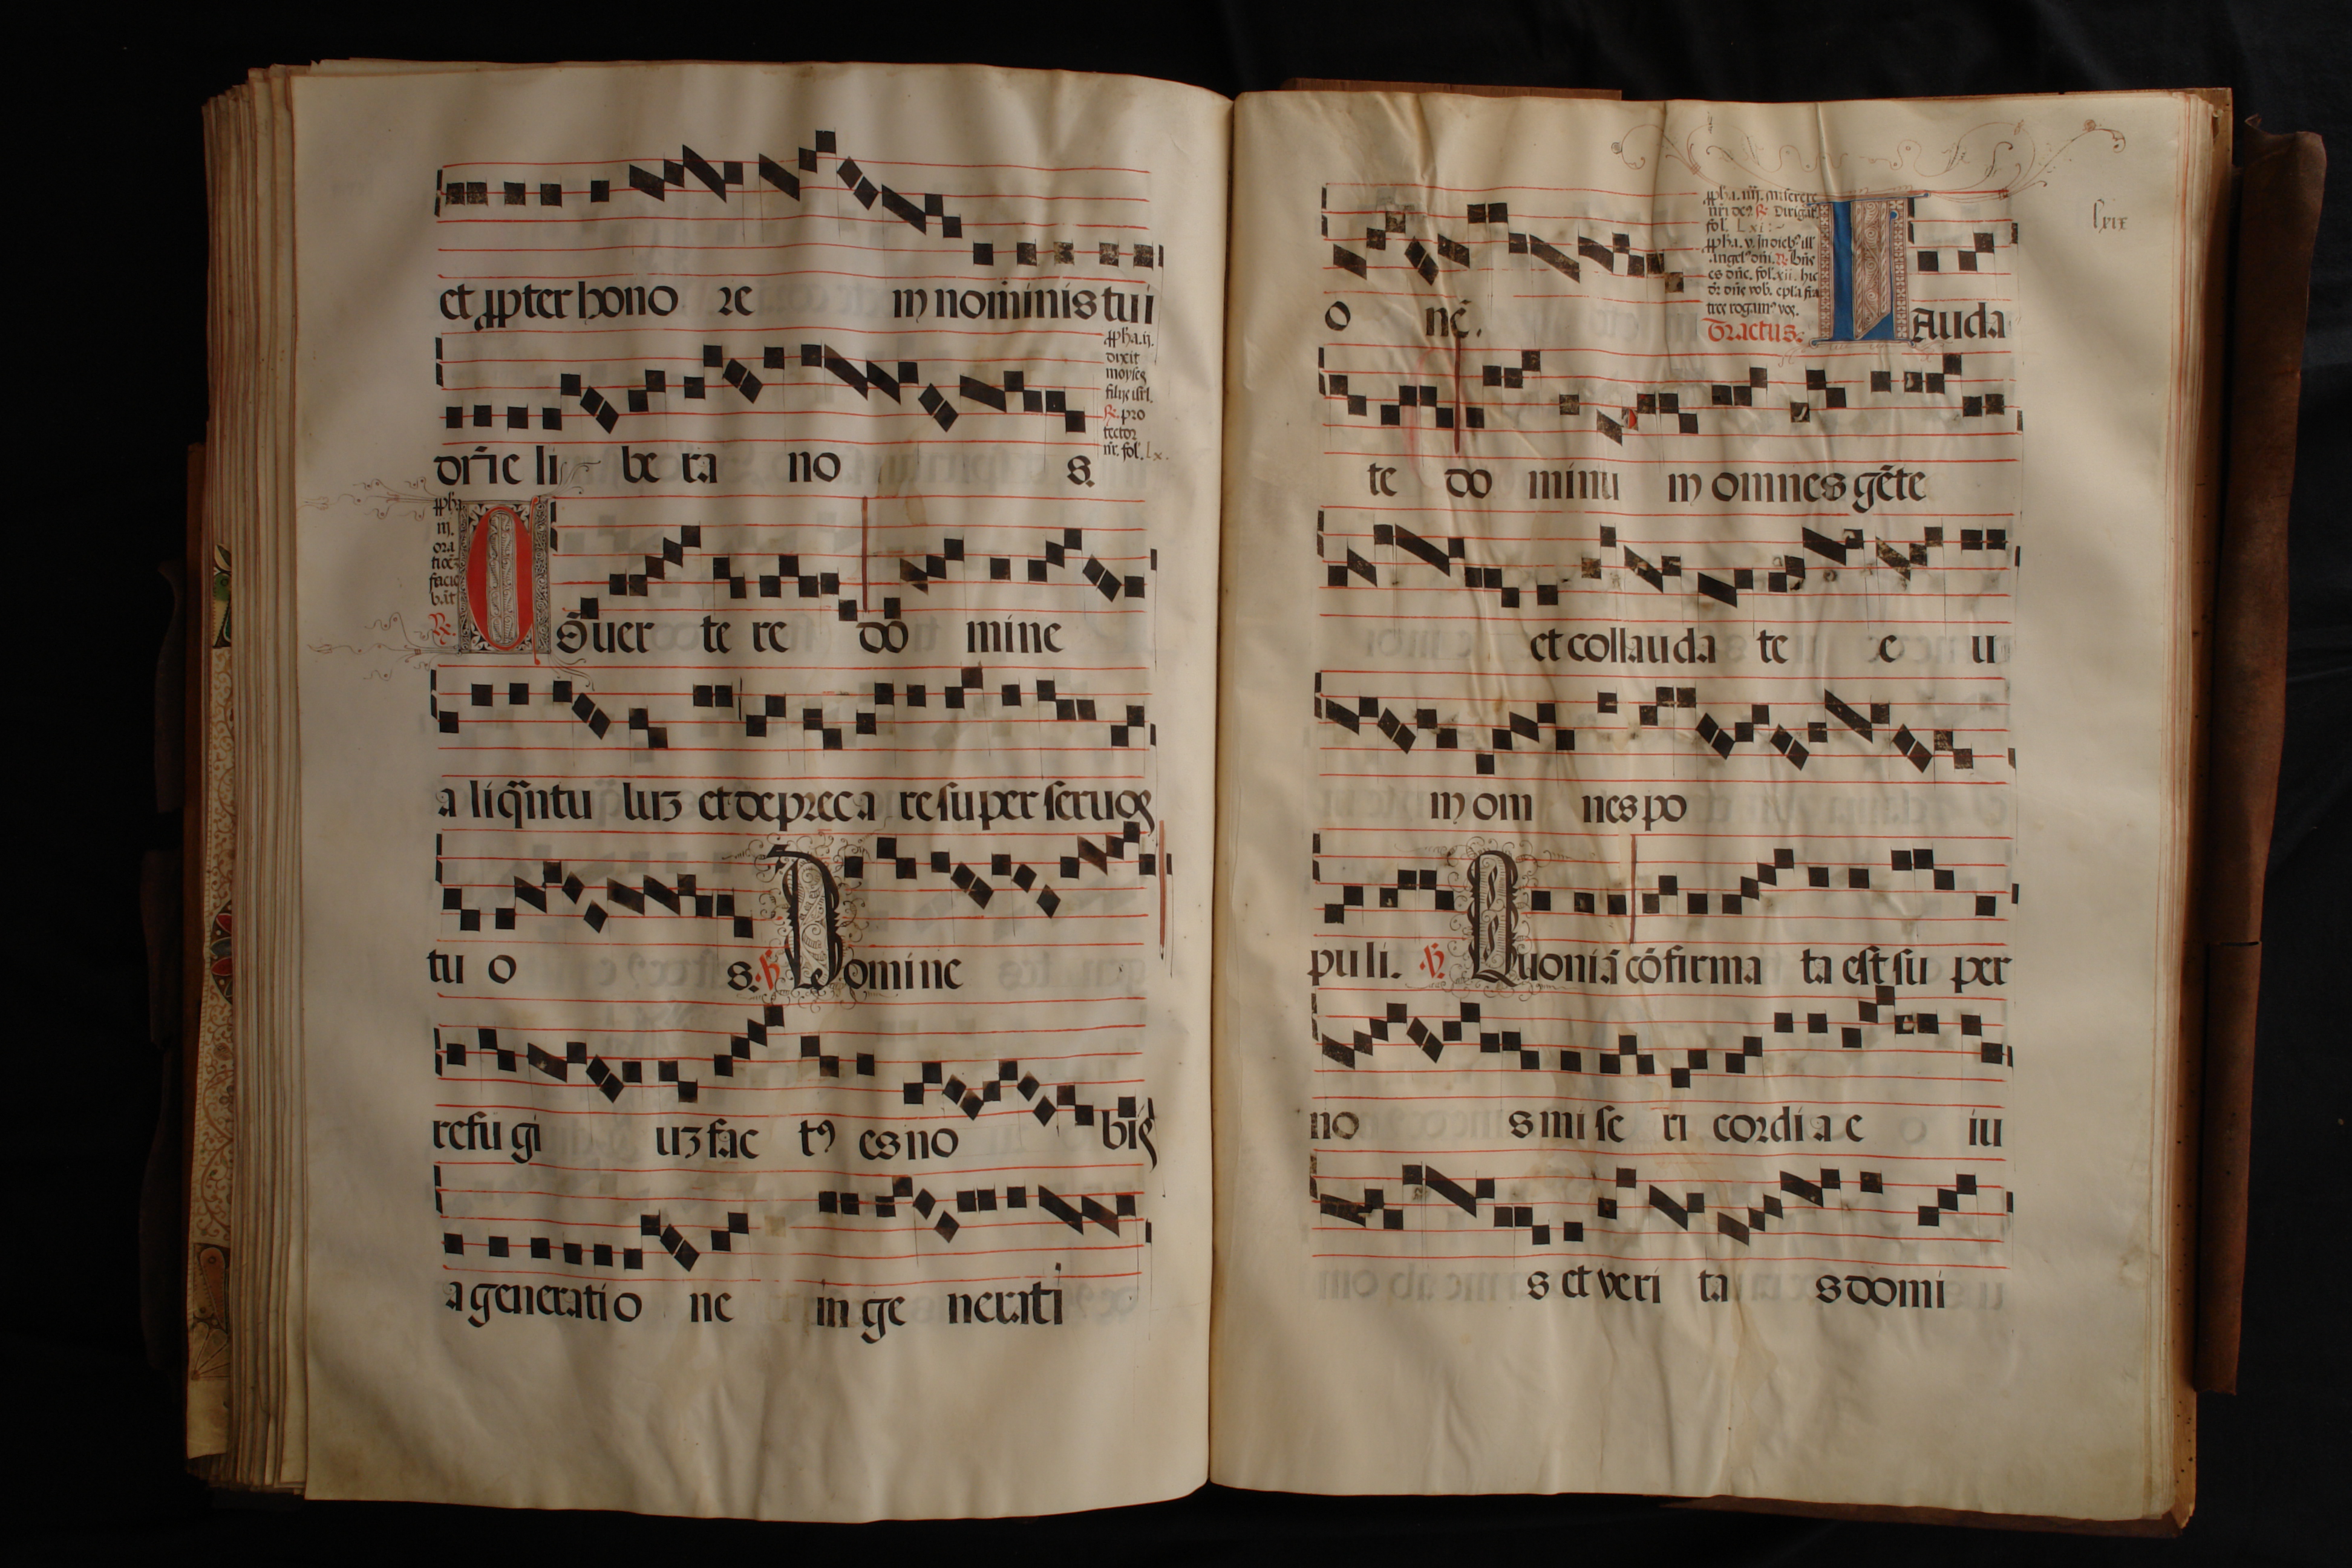 et ꝓpter hono re in nominis tui
ꝓpha. ij.
dixit
moyses
filijs isrl.
℟. pro
tector
nr̄. fol. lx.
dn̄e li be ra no s.
ꝓph
iij.
ora
facie
bāt
℟.
Cōuer te re do mine
a liq̄ntu luꝫ et depreca re super seruos
tu o s. ℣. Domine
refugi uꝫ fac tꝰ es no bis
a generatio ne in ge nerati
o nē.
ꝓpha. iiij. miserere
nr̄i deꝰ ℟. Dirigat
fol. Lxi:~
ꝓpha. v. In diebꝰ ill'
Angelꝰ dn̄i. ℟. bn̄e
es dn̄e. fol. xii. hic
dr̄ dn̄e vob. ep̄la fra
tres rogamꝰ vos.
Tractus.
Lauda
lxix
te do minu m omnes gēte
s et collauda te e u
m om nes po
pu li. ℣. Quoniā cōfirma ta est su per
no s mi se ri cordi a e iu
s et veri ta s domi